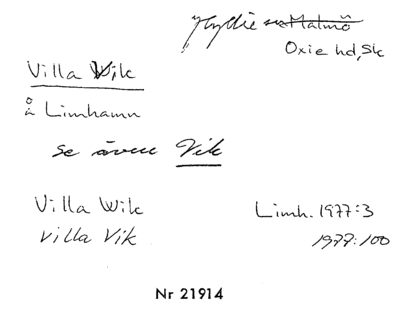 Hyllie sn Malmö
Oxie hd, Sk
Villa Wik
å Limhamn
se även Vik
Villa Wik Limh. 1977:3
Villa Vik 1977:100
Nr 21914